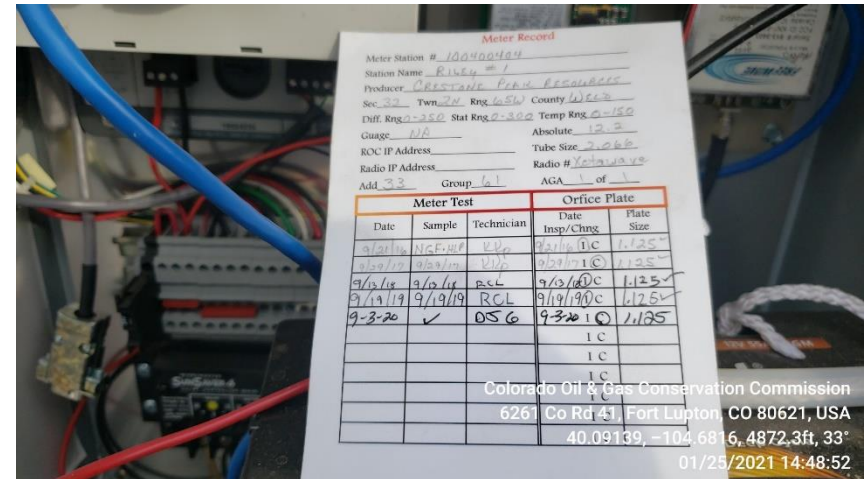 Meter Record
Meter Station # 100400404
Station Name Riley #1
Producer CRESTONE PEAK RESOURCES
Sec 32 Twn 2N Rng 65W County WELD
Diff. Rng 0-250 Stat Rng 0-300 Temp Rng 0-150
Guage NA Absolute 12.2
ROC IP Address Tube Size 2.066
Radio IP Address Radio # Xetawave
Add 33 Group 61 AGA 1 of 1
Meter Test Orfice Plate
Date Sample Technician Date Insp/Chng Plate Size
9/21/16 NGF-HLP KKp 9/21/16 I C 1.125
9/29/17 9/29/17 KKp 9/29/17 I C 1.125
9/13/18 9/13/18 RCL 9/13/18 I C 1.125 ✓
9/19/19 9/19/19 RCL 9/19/19 I C 1.125 ✓
9-3-20 ✓ DSG 9-3-20 I C 1.125
I C
I C
I C
I C
SunSaver-6
FREEWAVE
12V
Colorado Oil & Gas Conservation Commission
6261 Co Rd 41, Fort Lupton, CO 80621, USA
40.09139, -104.6816, 4872.3ft, 33°
01/25/2021 14:48:52